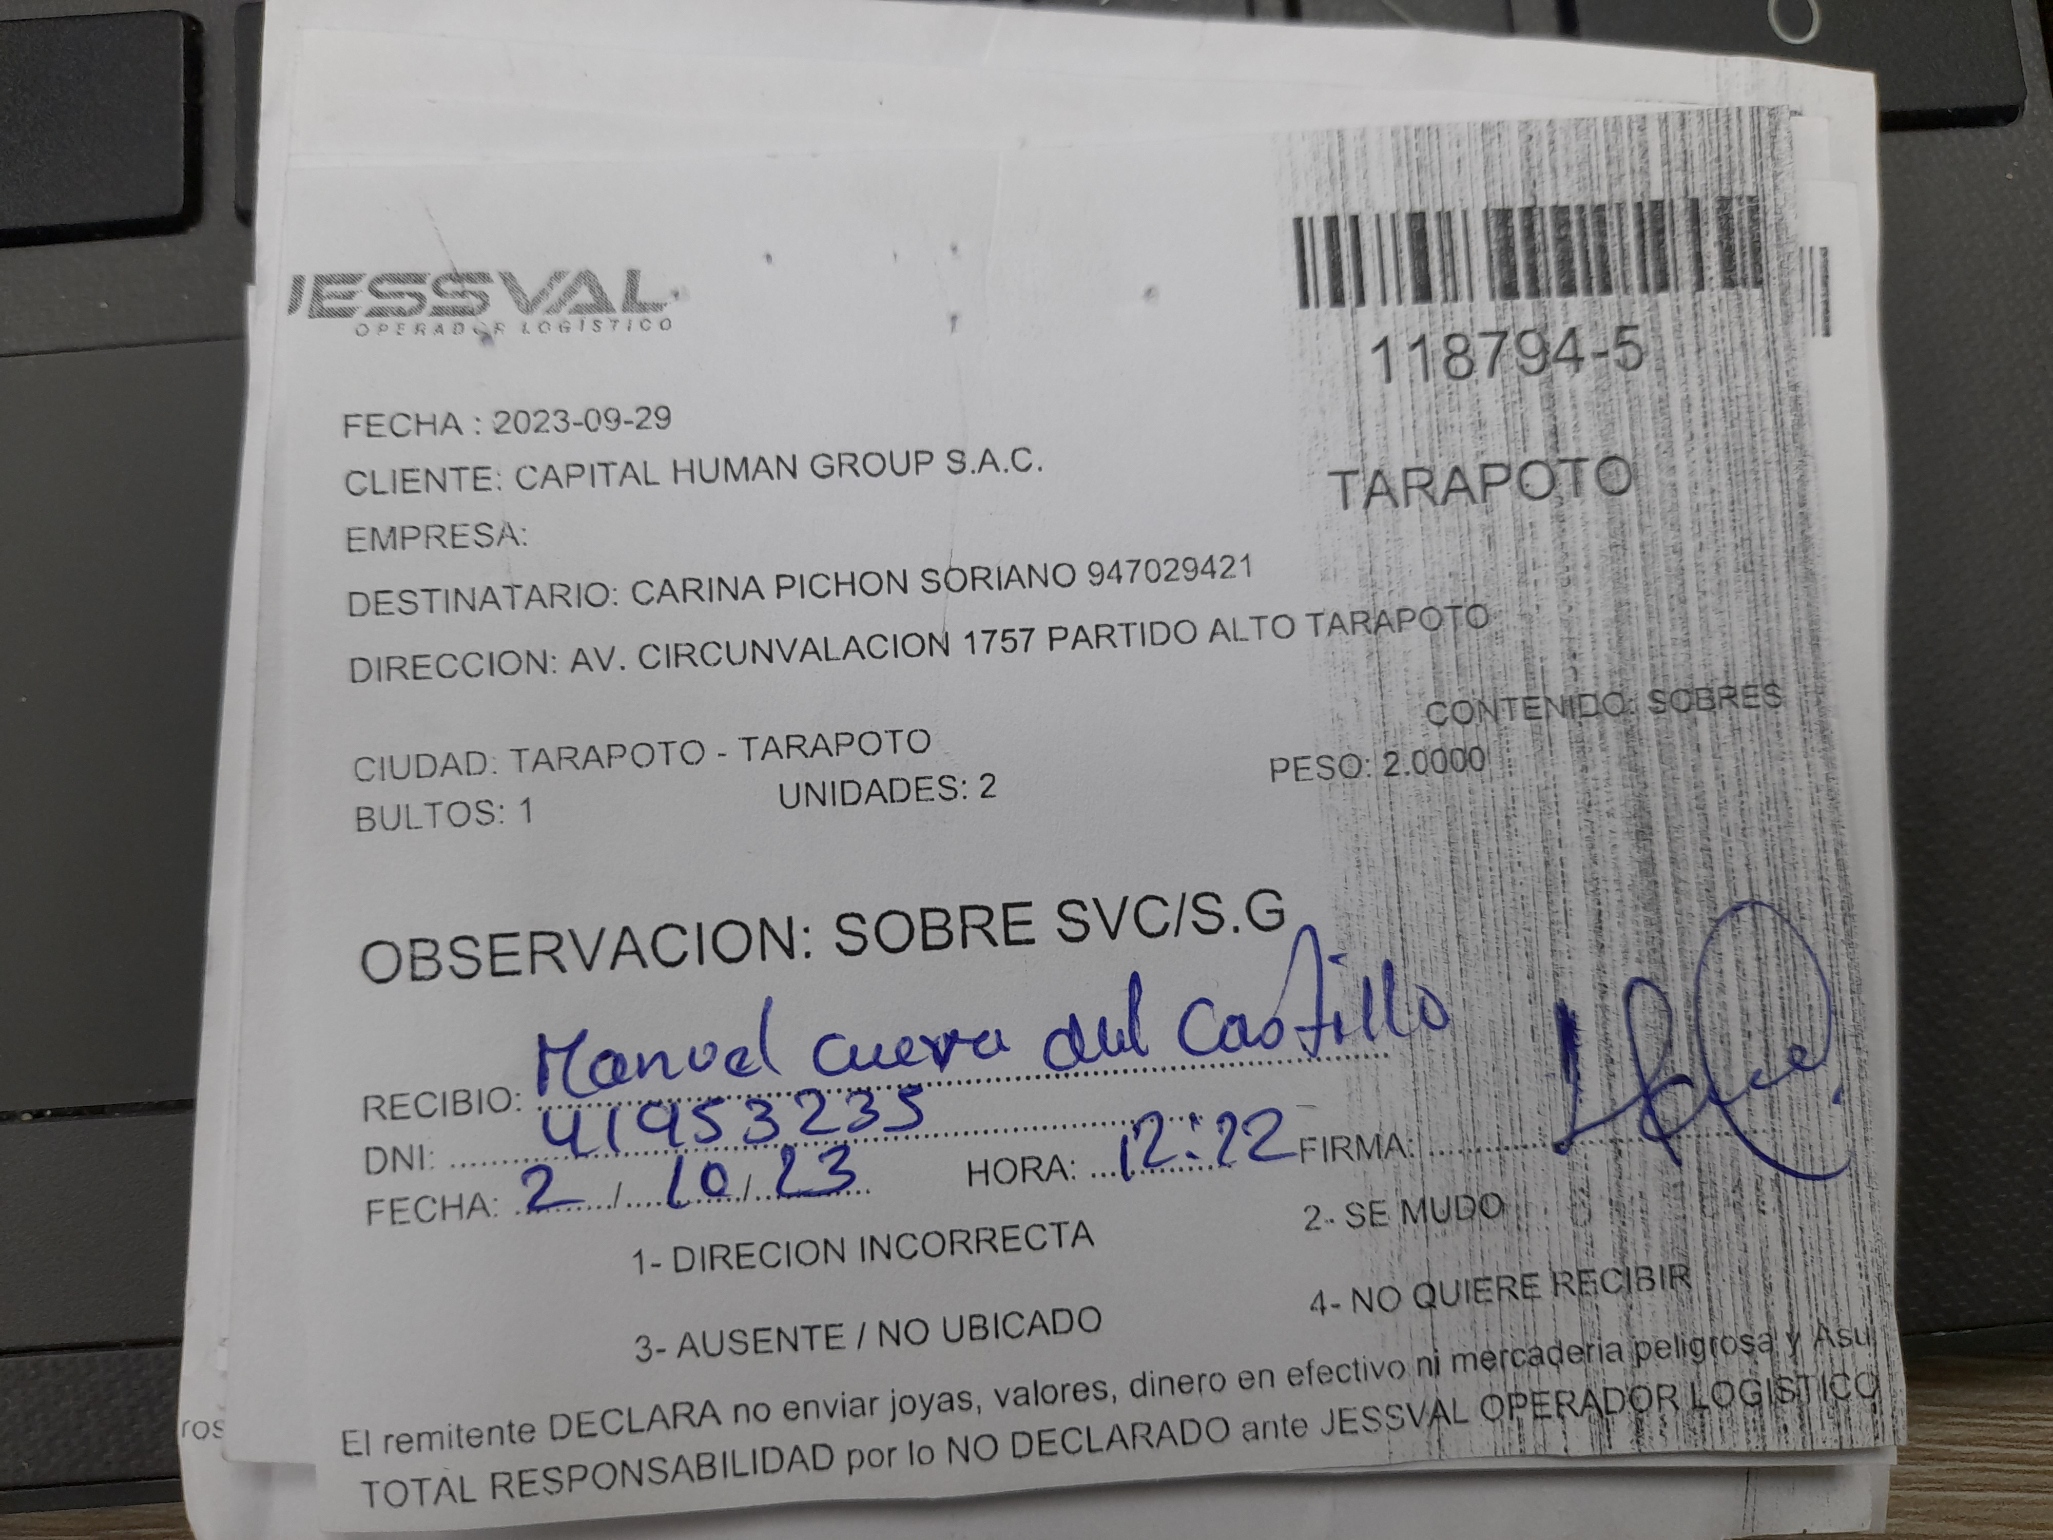 JESSVAL
OPERADOR LOGISTICO
118794-5
FECHA : 2023-09-29
TARAPOTO
CLIENTE: CAPITAL HUMAN GROUP S.A.C.
EMPRESA:
DESTINATARIO: CARINA PICHON SORIANO 947029421
DIRECCION: AV. CIRCUNVALACION 1757 PARTIDO ALTO TARAPOTO
CONTENIDO: SOBRES
CIUDAD: TARAPOTO - TARAPOTO
BULTOS: 1 UNIDADES: 2 PESO: 2.0000
OBSERVACION: SOBRE SVC/S.G
RECIBIO: Manuel cueva del Castillo
DNI: 41953235
FECHA: 2/10/23 HORA: 12:22 FIRMA:
1- DIRECION INCORRECTA 2- SE MUDO
3- AUSENTE / NO UBICADO 4- NO QUIERE RECIBIR
El remitente DECLARA no enviar joyas, valores, dinero en efectivo ni mercaderia peligrosa y Asu
TOTAL RESPONSABILIDAD por lo NO DECLARADO ante JESSVAL OPERADOR LOGISTICO
ros